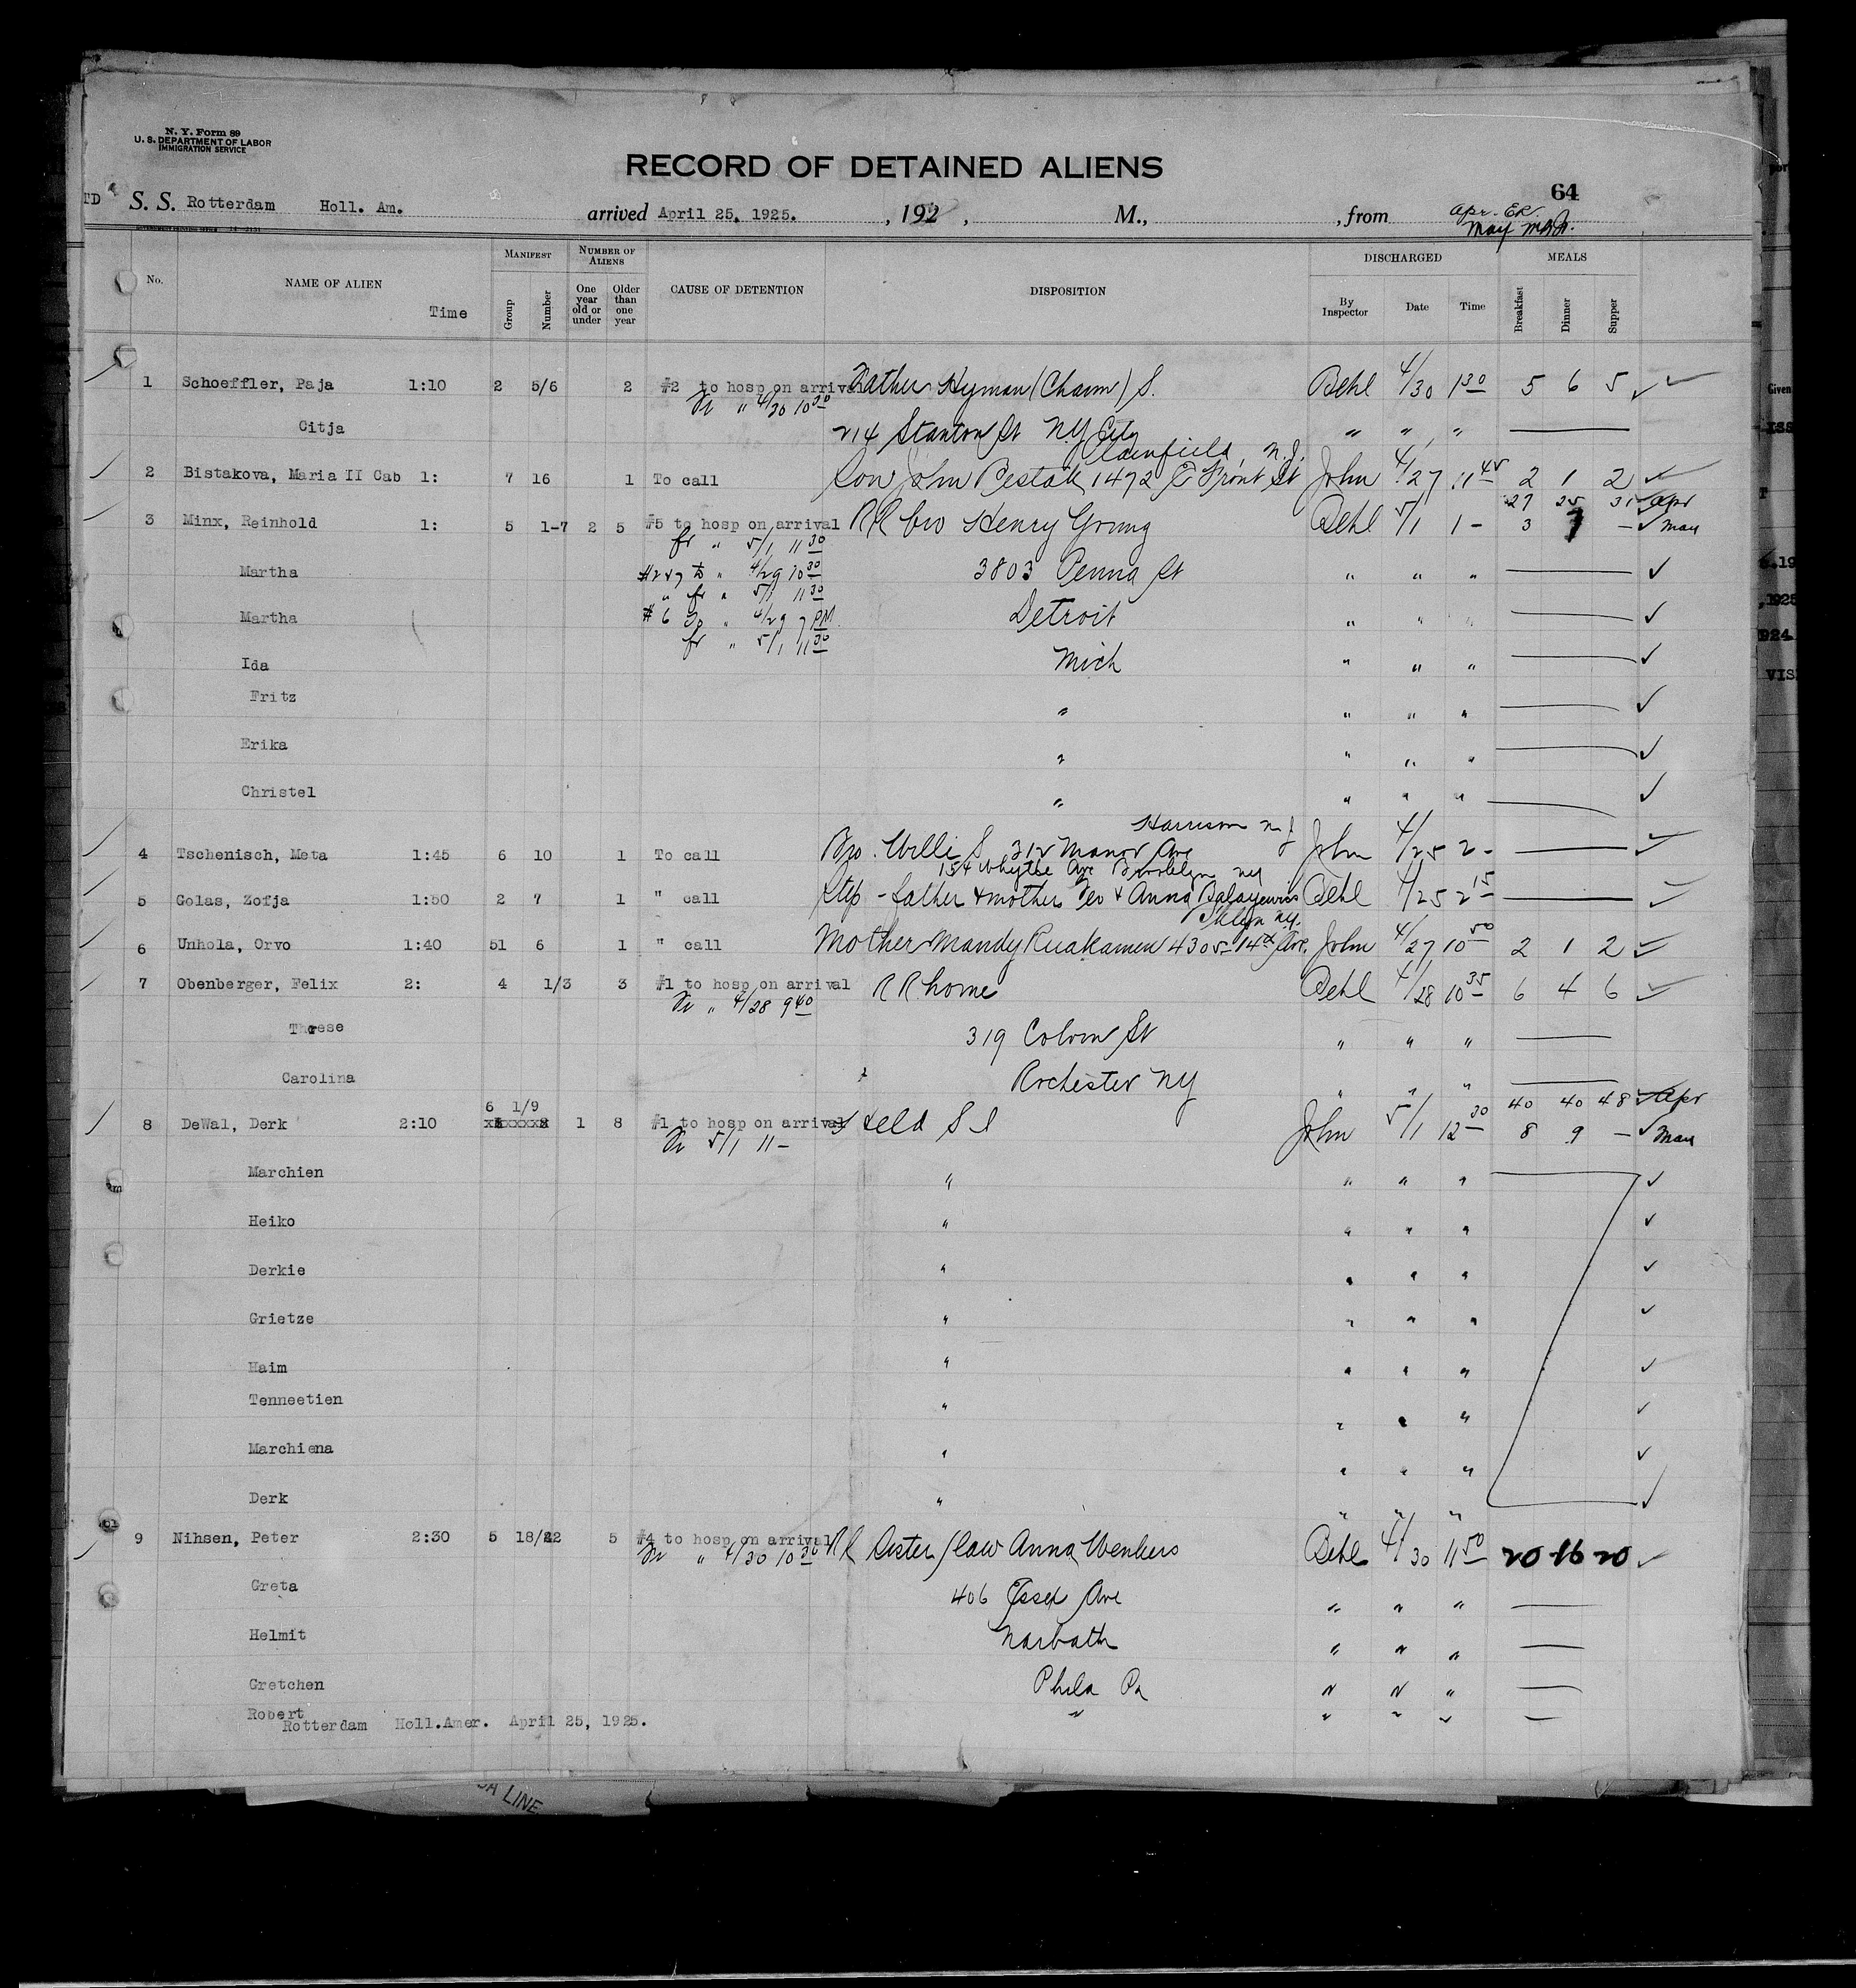 N. Y. Form 89
U. S. DEPARTMENT OF LABOR
IMMIGRATION SERVICE
RECORD OF DETAINED ALIENS
64
TD S. S. Rotterdam Holl. Am. arrived April 25, 1925. , 192 , M., , from Apr. E.R.
May
No. NAME OF ALIEN Time MANIFEST Group Number NUMBER OF ALIENS One year old or under Older than one year CAUSE OF DETENTION DISPOSITION DISCHARGED By Inspector Date Time MEALS Breakfast Dinner Supper
1 Schoeffler, Paja 1:10 2 5/6 2 #2 to hosp on arrival Father Hyman (Chaim) S. Behl 4/30 1 30 5 6 5 ✓ ✓
Fr " 4/30 10 30
Citja 214 Stanton St N.Y City " " "
Plainfield, N.J.
2 Bistakova, Maria II Cab 1: 7 16 1 To call Son John Bestak 1472 E Front St John 4/27 11 45 2 1 2 ✓
27 25 31 ✓ Apr
3 Minx, Reinhold 1: 5 1-7 2 5 #5 to hosp on arrival RR bro Henry Grung Behl 5/1 1 - 3 7 - ✓ May
fr " 5/1 11 30
Martha #2 & 7 to " 4/29 10 30 3803 Penna St " " " ✓
" fr " 5/1 11 30
Martha #6 To " 4/29 7 PM Detroit " " " ✓
fr " 5/1 11 30
Ida Mich " " " ✓
Fritz " " " " ✓
Erika " " " " ✓
Christel " " " " ✓
Harrison N J
4 Tschenisch, Meta 1:45 6 10 1 To call Bro. Willi S 312 Manor Ave John 4/25 2 - ✓
154 Whythe Ave Brooklyn NY
5 Golas, Zofja 1:50 2 7 1 " call Step-father & mother & Anna Behl 4/25 2 15 ✓
Bklyn N.Y.
6 Unhola, Orvo 1:40 51 6 1 " call Mother Mandy Ruakamen 4305-14th Ave. John 4/27 10 50 2 1 2 ✓
7 Obenberger, Felix 2: 4 1/3 3 #1 to hosp on arrival RR home Behl 4/28 10 35 6 4 6 ✓
Fr " 4/28 9 40
Therese 319 Colvin St " " "
Carolina Rochester NY " " "
6 1/9 40 40 48 ✓ Apr
8 DeWal, Derk 2:10 1 8 #1 to hosp on arrival Held S I John 5/1 12 30 8 9 - ✓ May
Fr 5/1 11 -
Marchien " " " " ✓
Heiko " " " " ✓
Derkie " " " " ✓
Grietze " " " " ✓
Haim " " " " ✓
Tenneetien " " " " ✓
Marchiena " " " " ✓
Derk " " " " ✓
9 Nihsen, Peter 2:30 5 18/22 5 #4 to hosp on arrival RR Sister/law Anna Wenkers Behl 4/30 11 50 20 16 20 ✓
Fr " 4/30 10 30
Greta 406 Essex Ave " " "
Helmit Narbath " " "
Gretchen Phila Pa " " "
Robert " " " "
Rotterdam Holl.Amer. April 25, 1925.
LINE